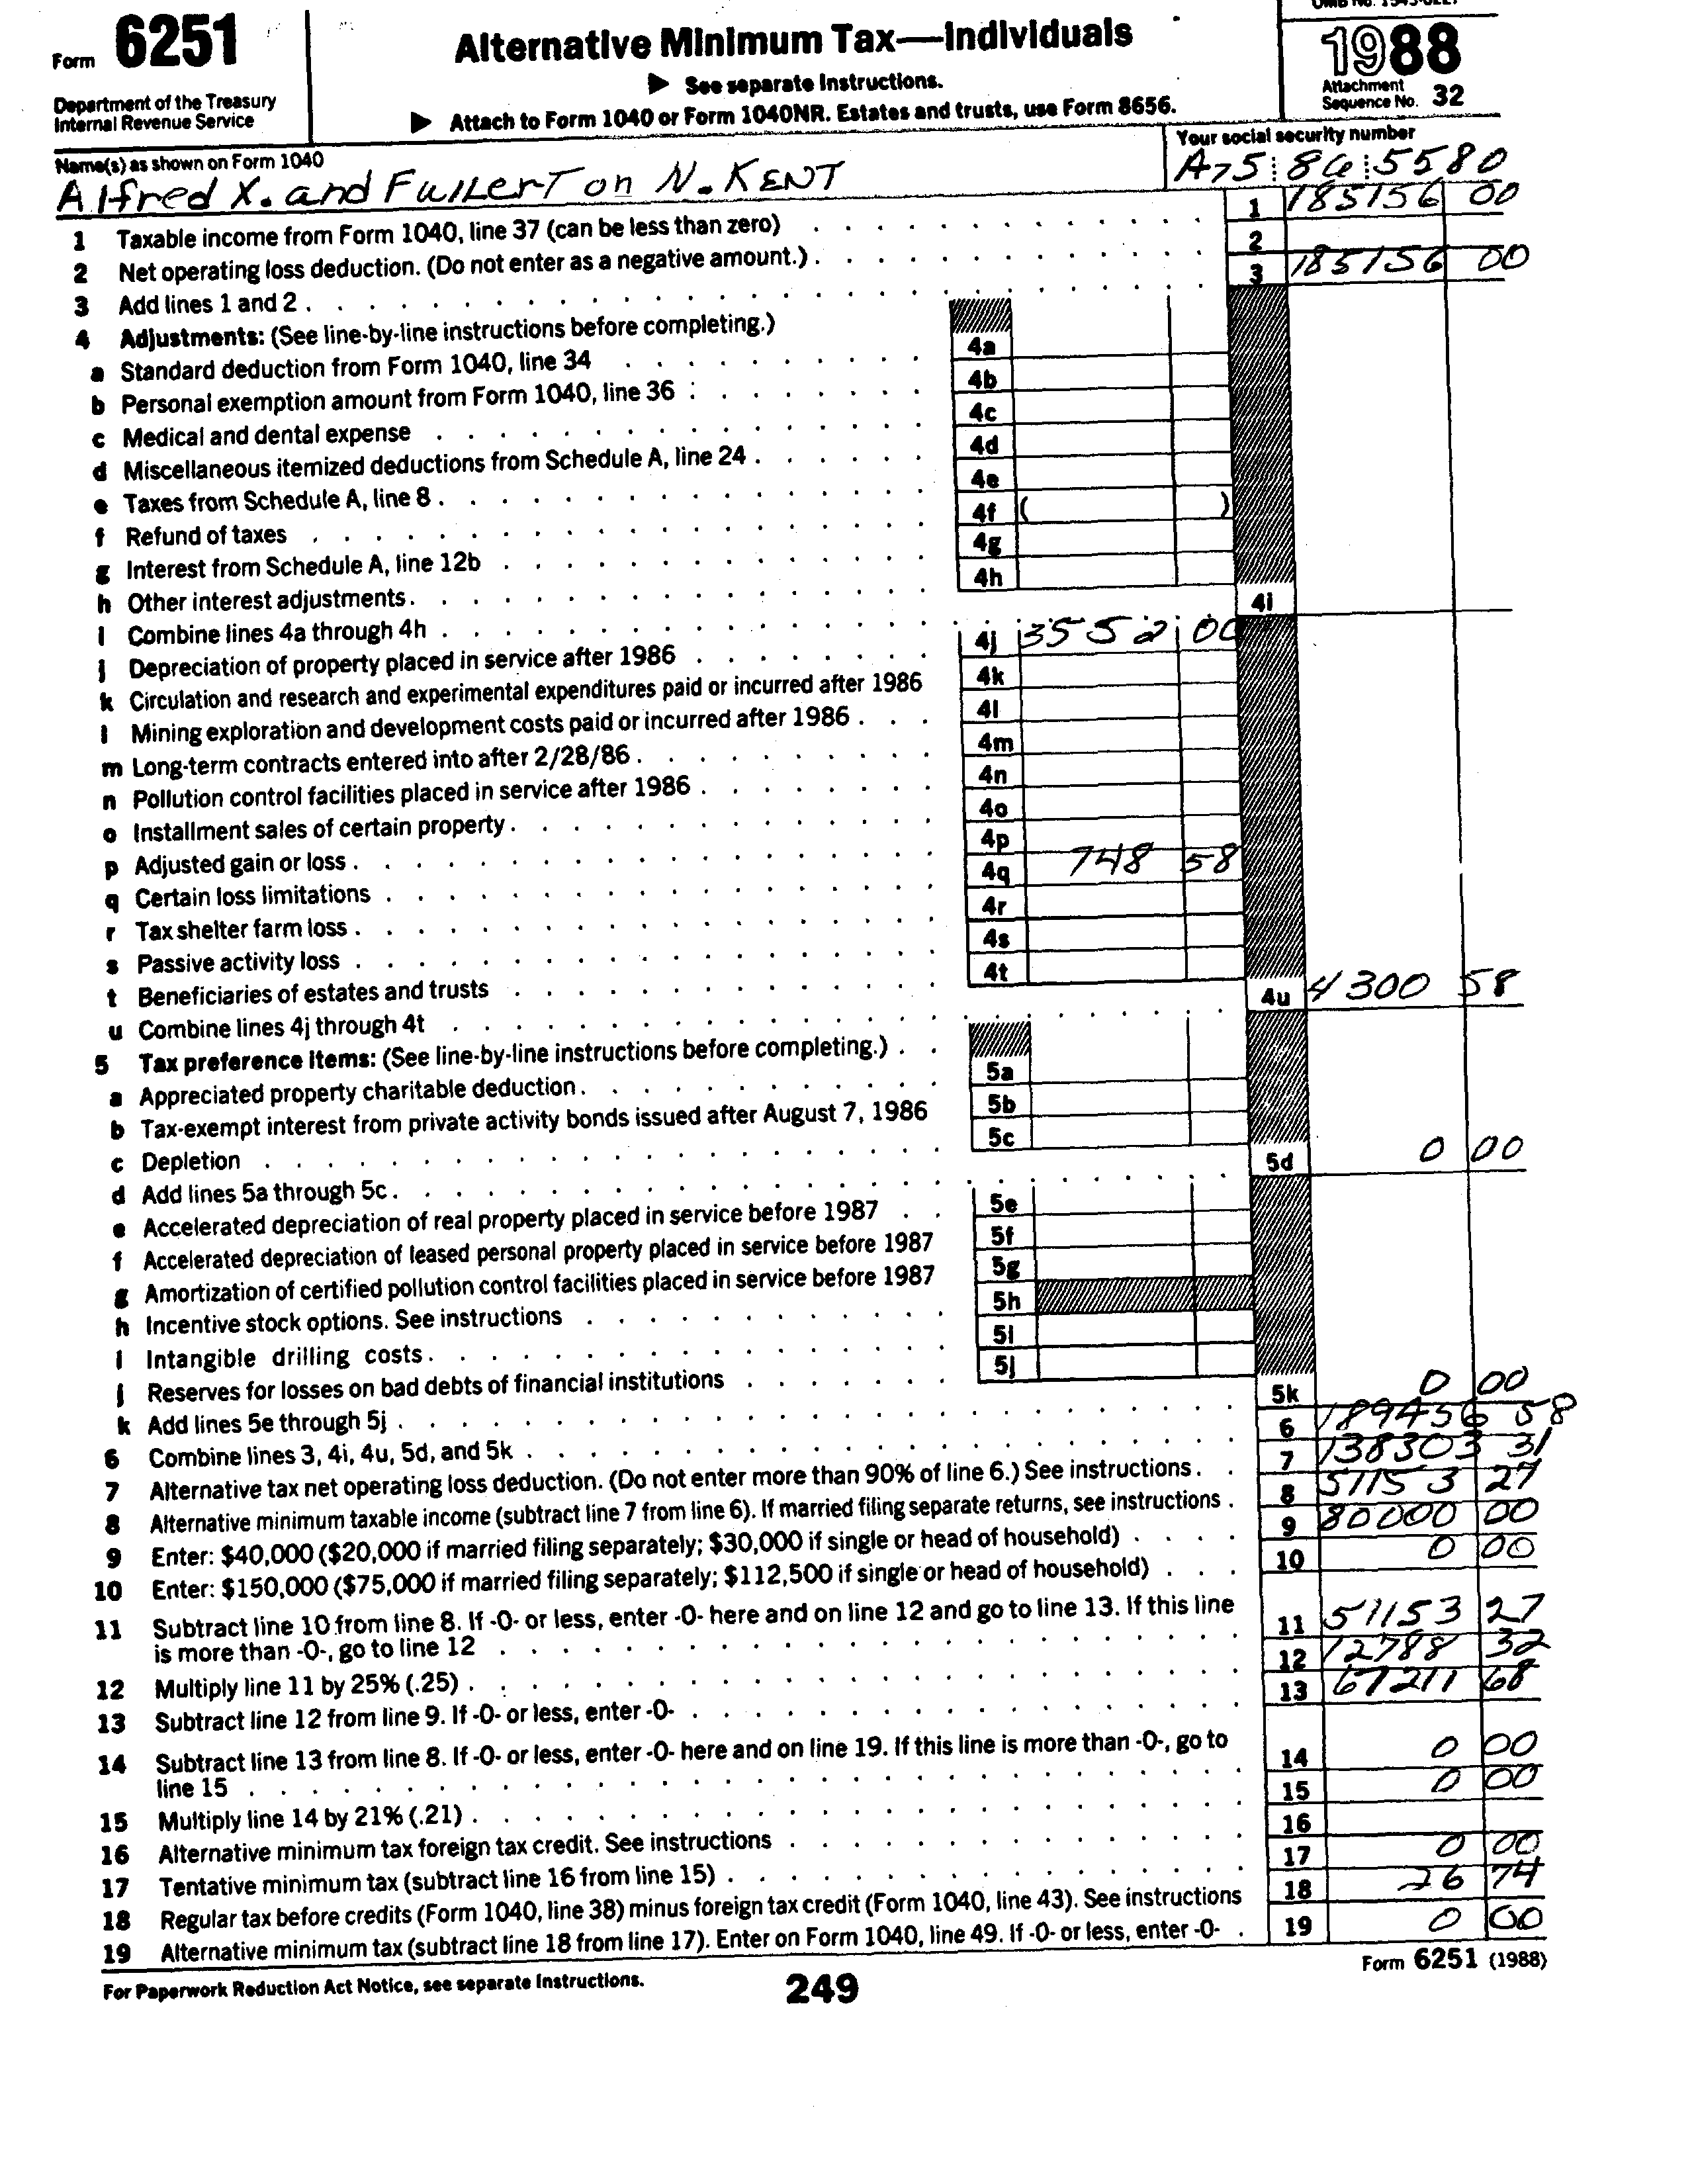 Form 6251
Department of the Treasury
Internal Revenue Service
Alternative Minimum Tax—Individuals
▶ See separate Instructions.
▶ Attach to Form 1040 or Form 1040NR. Estates and trusts, use Form 8656.
OMB No. 1545-0227
1988
Attachment
Sequence No. 32
Name(s) as shown on Form 1040
Alfred X. and FullerTon N. KENT
Your social security number
A75 86 5580
1 Taxable income from Form 1040, line 37 (can be less than zero) 1 185156 00
2 Net operating loss deduction. (Do not enter as a negative amount.) 2
3 Add lines 1 and 2 3 185156 00
4 Adjustments: (See line-by-line instructions before completing.)
a Standard deduction from Form 1040, line 34 4a
b Personal exemption amount from Form 1040, line 36 4b
c Medical and dental expense 4c
d Miscellaneous itemized deductions from Schedule A, line 24 4d
e Taxes from Schedule A, line 8 4e
f Refund of taxes 4f ( )
g Interest from Schedule A, line 12b 4g
h Other interest adjustments 4h
i Combine lines 4a through 4h 4i
j Depreciation of property placed in service after 1986 4j 3552 00
k Circulation and research and experimental expenditures paid or incurred after 1986 4k
l Mining exploration and development costs paid or incurred after 1986 4l
m Long-term contracts entered into after 2/28/86 4m
n Pollution control facilities placed in service after 1986 4n
o Installment sales of certain property 4o
p Adjusted gain or loss 4p
q Certain loss limitations 4q 748 58
r Tax shelter farm loss 4r
s Passive activity loss 4s
t Beneficiaries of estates and trusts 4t
u Combine lines 4j through 4t 4u 4300 58
5 Tax preference items: (See line-by-line instructions before completing.)
a Appreciated property charitable deduction 5a
b Tax-exempt interest from private activity bonds issued after August 7, 1986 5b
c Depletion 5c
d Add lines 5a through 5c 5d 0 00
e Accelerated depreciation of real property placed in service before 1987 5e
f Accelerated depreciation of leased personal property placed in service before 1987 5f
g Amortization of certified pollution control facilities placed in service before 1987 5g
h Incentive stock options. See instructions 5h
i Intangible drilling costs 5i
j Reserves for losses on bad debts of financial institutions 5j
k Add lines 5e through 5j 5k 0 00
6 Combine lines 3, 4i, 4u, 5d, and 5k 6 189456 58
7 Alternative tax net operating loss deduction. (Do not enter more than 90% of line 6.) See instructions 7 138303 31
8 Alternative minimum taxable income (subtract line 7 from line 6). If married filing separate returns, see instructions 8 51153 27
9 Enter: $40,000 ($20,000 if married filing separately; $30,000 if single or head of household) 9 80000 00
10 Enter: $150,000 ($75,000 if married filing separately; $112,500 if single or head of household) 10 0 00
11 Subtract line 10 from line 8. If -0- or less, enter -0- here and on line 12 and go to line 13. If this line
is more than -0-, go to line 12 11 51153 27
12 Multiply line 11 by 25% (.25) 12 12788 32
13 Subtract line 12 from line 9. If -0- or less, enter -0- 13 67211 68
14 Subtract line 13 from line 8. If -0- or less, enter -0- here and on line 19. If this line is more than -0-, go to
line 15 14 0 00
15 Multiply line 14 by 21% (.21) 15 0 00
16 Alternative minimum tax foreign tax credit. See instructions 16
17 Tentative minimum tax (subtract line 16 from line 15) 17 0 00
18 Regular tax before credits (Form 1040, line 38) minus foreign tax credit (Form 1040, line 43). See instructions 18 26 74
19 Alternative minimum tax (subtract line 18 from line 17). Enter on Form 1040, line 49. If -0- or less, enter -0- 19 0 00
For Paperwork Reduction Act Notice, see separate Instructions.
249
Form 6251 (1988)